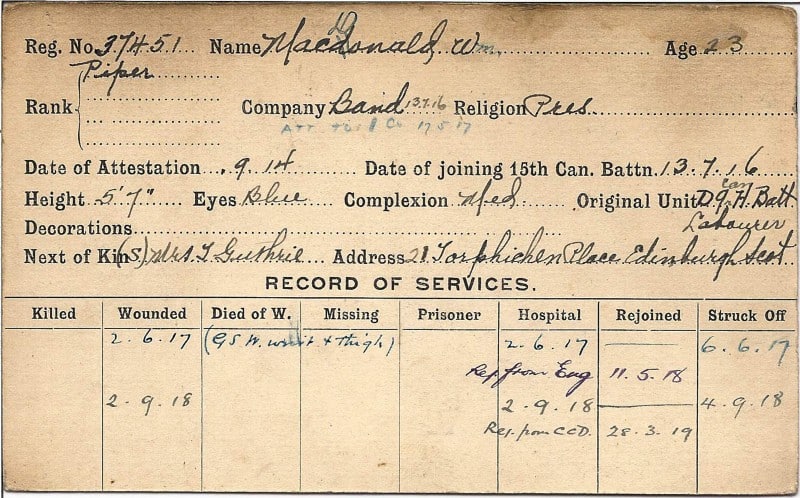 Reg. No. 37451 Name Macdonald, Wm. Age 23
Piper
Rank Company Band 13.7.16 Religion Pres.
Att to Co 17 5 17
Date of Attestation . 9. 14 Date of joining 15th Can. Battn. 13. 7. 16
Height 5'7" Eyes Blue Complexion Med Original Unit Can Batt
Decorations Labourer
Next of Kin (S) Mrs. T Guthrie Address 21 Torphichen Place Edinburgh Scot
RECORD OF SERVICES.
Killed Wounded Died of W. Missing Prisoner Hospital Rejoined Struck Off
2. 6. 17 (GSW wrist & thigh) 2. 6. 17 6. 6. 17
Rep. from Eng 11. 5. 18
2. 9. 18 2. 9. 18 4. 9. 18
Rep. from CCD. 28. 3. 19